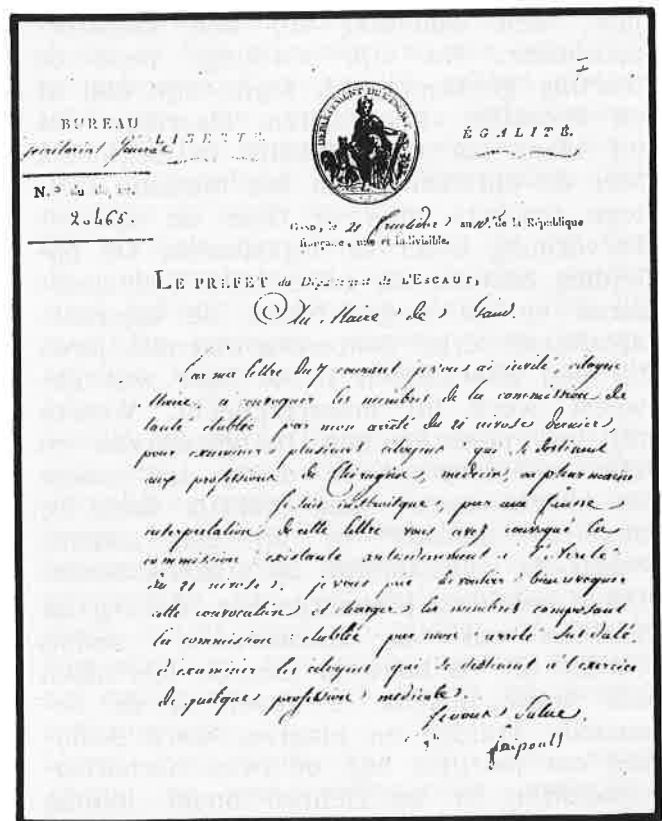 I
BUREAU
Secrétariat Général
LIBERTÉ.
DÉPARTEMENT DE L'ESCAUT
ÉGALITÉ.
N.º du
20465
Gand, le 21 fructidor an 10e de la République
française, une et indivisible.
LE PRÉFET du Département de L'ESCAUT,
Au Maire de Gand.
Par ma lettre du 7 courant je vous ai invité, citoyen
Maire, à convoquer les membres de la commission de
santé établie par mon arrêté du 21 nivose dernier,
pour examiner plusieurs citoyens qui se destinent
aux professions de Chirurgiens, médecins ou pharmacien
Je suis instruit que par une fausse
interprétation de cette lettre vous avez convoqué la
commission existante antérieurement à l'arrêté
du 21 nivose. je vous prie de vouloir bien revoquer
cette convocation et charger les membres composant
la commission établie par mon arrêté susdaté
d'examiner les citoyens qui se destinent à l'exercice
de quelques professions médicales.
Je vous Salue.
faipoult